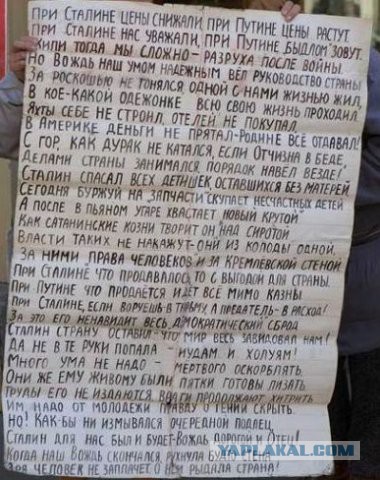 ПРИ СТАЛИНЕ ЦЕНЫ СНИЖАЛИ, ПРИ ПУТИНЕ ЦЕНЫ РАСТУТ
ПРИ СТАЛИНЕ НАС УВАЖАЛИ, ПРИ ПУТИНЕ „БЫДЛОМ" ЗОВУТ.
ЖИЛИ ТОГДА МЫ СЛОЖНО - РАЗРУХА ПОСЛЕ ВОЙНЫ.
НО ВОЖДЬ НАШ УМОМ НАДЕЖНЫМ ВЁЛ РУКОВОДСТВО СТРАНЫ
ЗА РОСКОШЬЮ НЕ ГОНЯЛСЯ, ОДНОЙ С НАМИ ЖИЗНЬЮ ЖИЛ,
В КОЕ-КАКОЙ ОДЕЖОНКЕ ВСЮ СВОЮ ЖИЗНЬ ПРОХОДИЛ.
ЯХТЫ СЕБЕ НЕ СТРОИЛ, ОТЕЛЕЙ НЕ ПОКУПАЛ,
В АМЕРИКЕ ДЕНЬГИ НЕ ПРЯТАЛ-РОДИНЕ ВСЁ ОТДАВАЛ!
С ГОР, КАК ДУРАК НЕ КАТАЛСЯ, ЕСЛИ ОТЧИЗНА В БЕДЕ,
ДЕЛАМИ СТРАНЫ ЗАНИМАЛСЯ, ПОРЯДОК НАВЕЛ ВЕЗДЕ!
СТАЛИН СПАСАЛ ВСЕХ ДЕТИШЕК, ОСТАВШИХСЯ БЕЗ МАТЕРЕЙ
СЕГОДНЯ БУРЖУЙ НА „ЗАПЧАСТИ" СКУПАЕТ НЕСЧАСТНЫХ ДЕТЕЙ
А ПОСЛЕ В ПЬЯНОМ УГАРЕ ХВАСТАЕТ „НОВЫЙ КРУТОЙ"
КАК САТАНИНСКИЕ КОЗНИ ТВОРИТ ОН НАД СИРОТОЙ
ВЛАСТИ ТАКИХ НЕ НАКАЖУТ-ОНИ ИЗ КОЛОДЫ ОДНОЙ.
ЗА НИМИ „ПРАВА ЧЕЛОВЕКОВ" И ЗА КРЕМЛЁВСКОЙ СТЕНОЙ
ПРИ СТАЛИНЕ ЧТО ПРОДАВАЛОСЬ, ТО С ВЫГОДОЙ ДЛЯ СТРАНЫ.
ПРИ ПУТИНЕ ЧТО ПРОДАЁТСЯ ИДЕТ ВСЁ МИМО КАЗНЫ
ПРИ СТАЛИНЕ, ЕСЛИ ВОРУЕШЬ-В ТЮРЬМУ, А ПРЕДАТЕЛЬ-В РАСХОД!
ЗА ЭТО ЕГО НЕНАВИДИТ ВЕСЬ „ДЕМОКРАТИЧЕСКИЙ" СБРОД
СТАЛИН СТРАНУ ОСТАВИЛ-ЧТО МИР ВЕСЬ ЗАВИДОВАЛ НАМ!
ДА НЕ В ТЕ РУКИ ПОПАЛА - ИУДАМ И ХОЛУЯМ!
МНОГО УМА НЕ НАДО - МЕРТВОГО ОСКОРБЛЯТЬ,
ОНИ ЖЕ ЕМУ ЖИВОМУ БЫЛИ ПЯТКИ ГОТОВЫ ЛИЗАТЬ
ТРУДЫ ЕГО НЕ ИЗДАЮТСЯ, ВРАГИ ПРОДОЛЖАЮТ ХИТРИТЬ
ИМ НАДО ОТ МОЛОДЕЖИ ПРАВДУ О ГЕНИИ СКРЫТЬ.
НО! КАК-БЫ НИ ИЗМЫВАЛСЯ ОЧЕРЕДНОЙ ПОДЛЕЦ,
СТАЛИН ДЛЯ НАС БЫЛ И БУДЕТ-ВОЖДЬ ДОРОГОЙ И ОТЕЦ!
КОГДА НАШ ВОЖДЬ СКОНЧАЛСЯ, РУХНУЛА БУДТО СТЕНА
ЗРЯ ЧЕЛОВЕК НЕ ЗАПЛАЧЕТ О НЁМ РЫДАЛА СТРАНА!
YAPLAKAL.COM